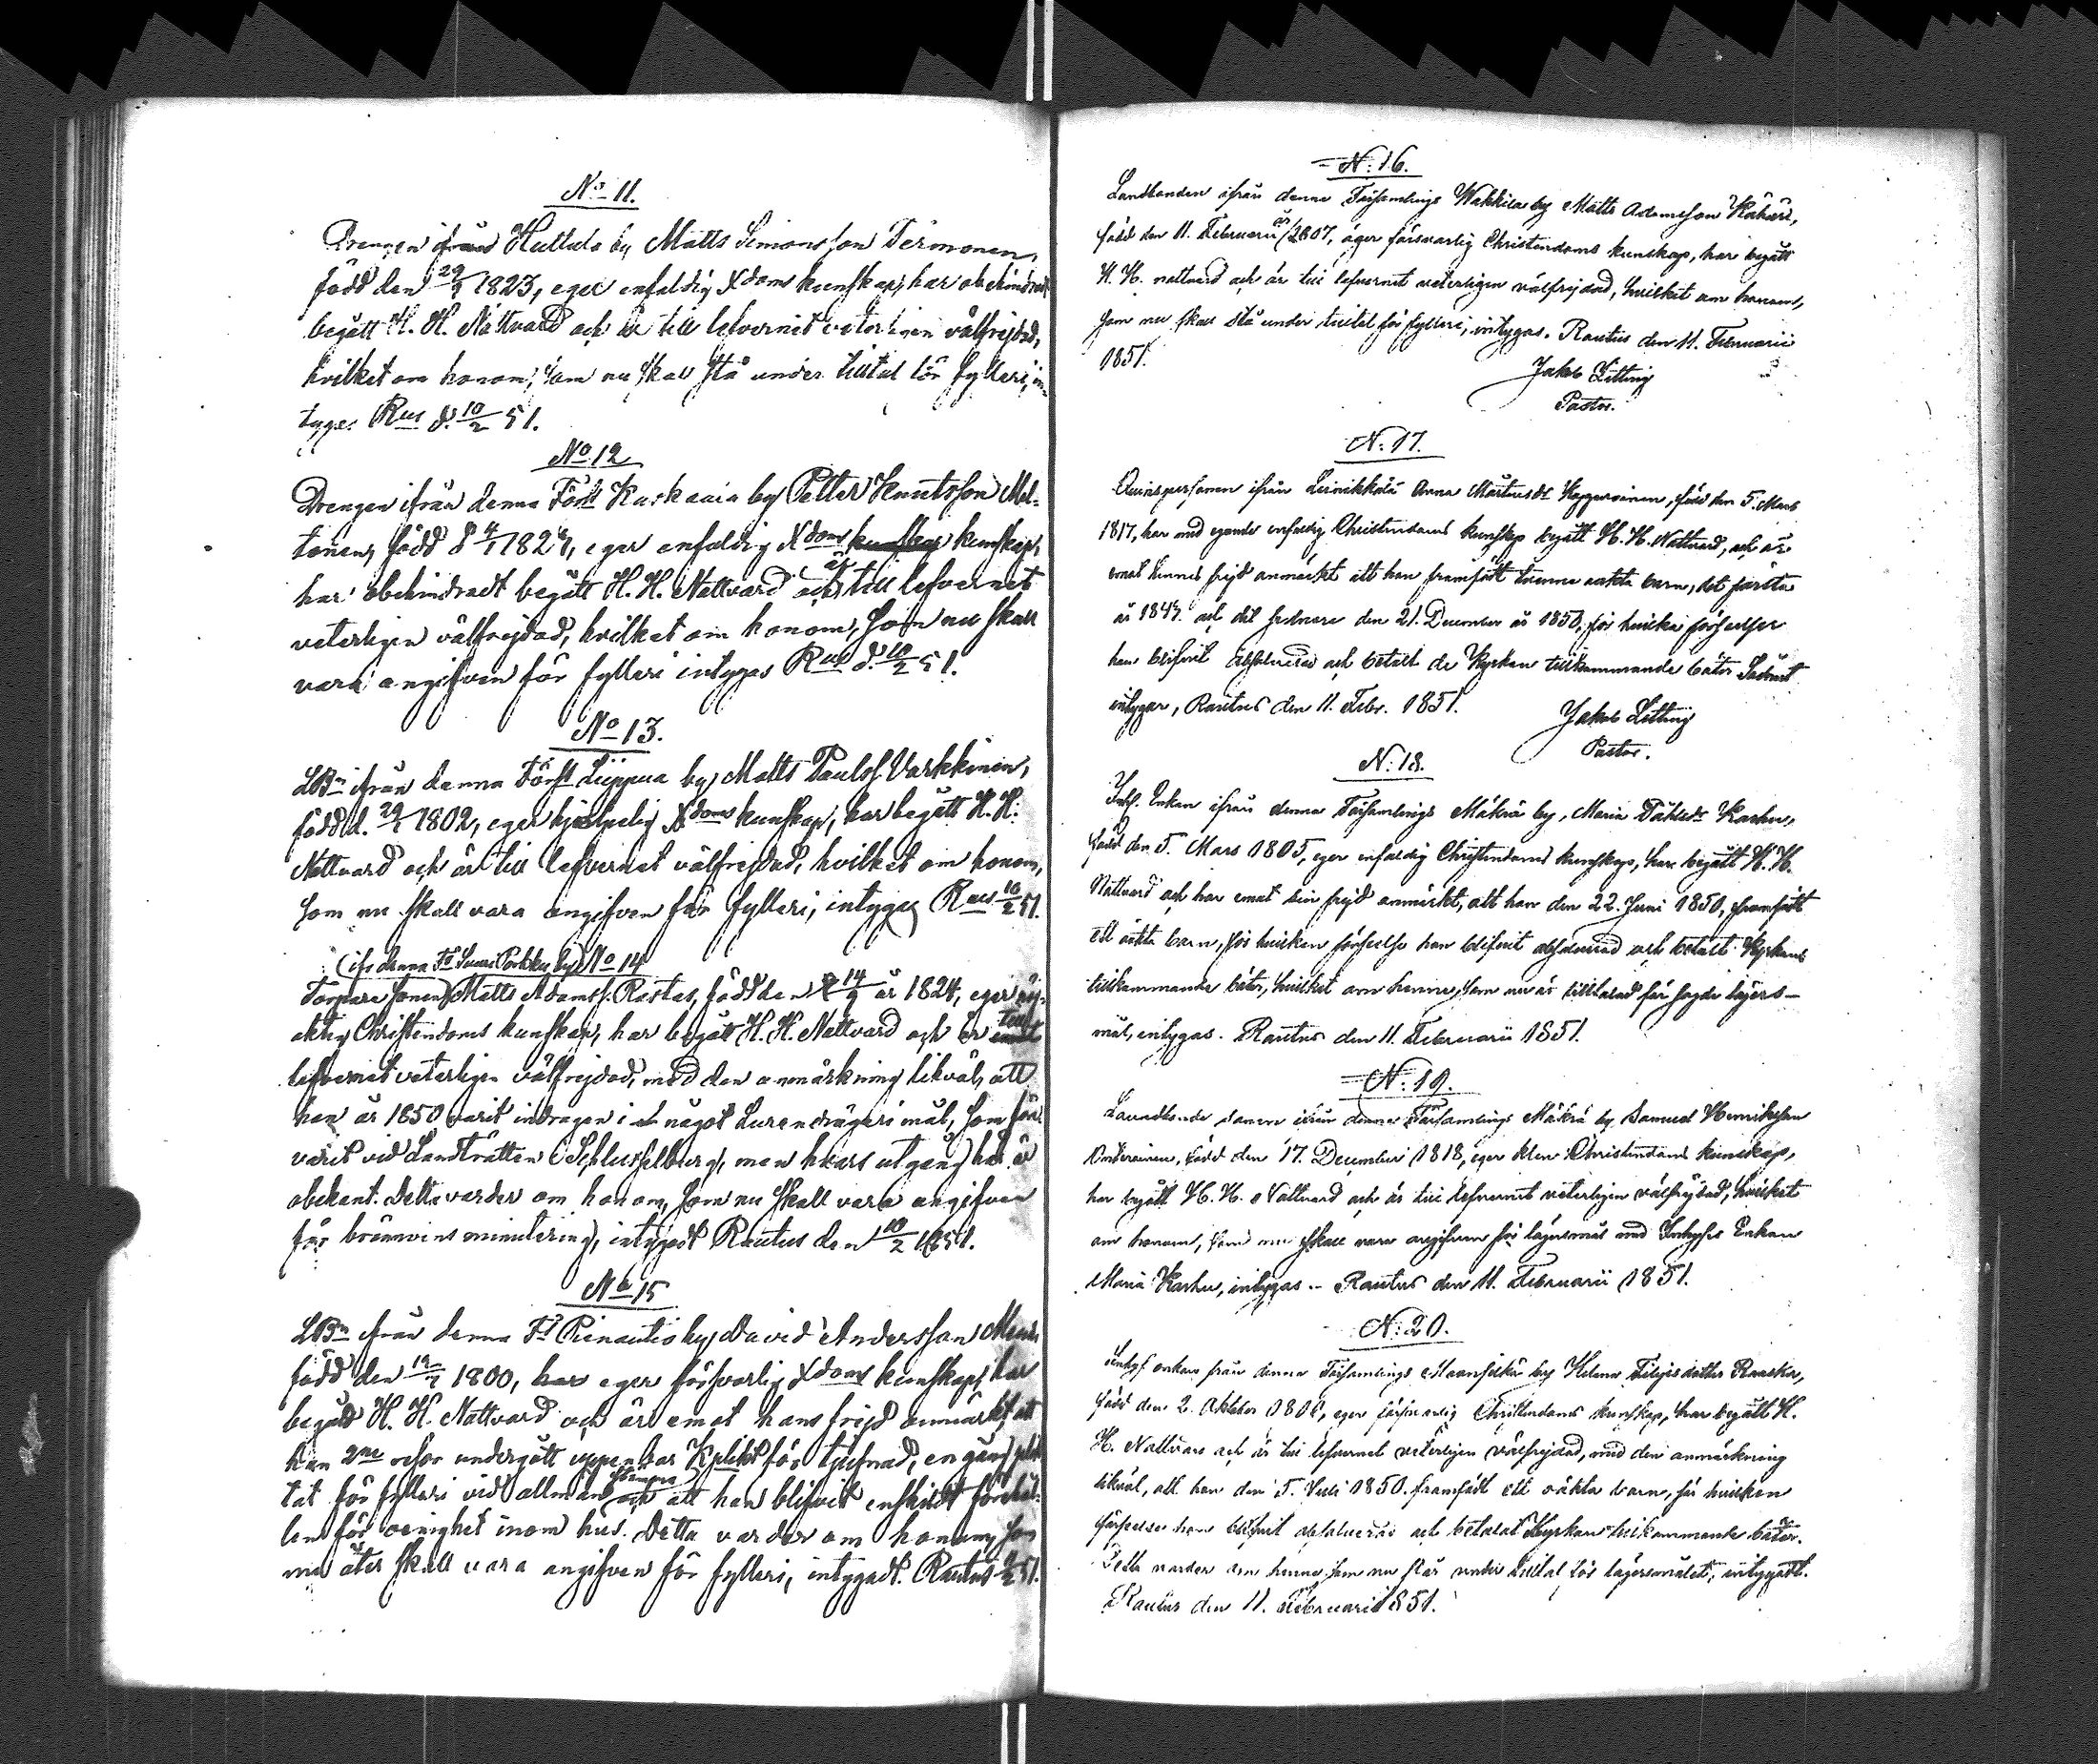 No 11.
Drengen ifrån Huttula by Matts Simonsson Termonen,
född den 29/9 1823, eger enfaldig Xdoms kunskap, har obehindradt
begått H. H. Nattvard och är till lefvernet veterligen välfrejdad,
hvilket om honom, som nu skall stå under tilltal för fylleri, in-
tygas Rus d. 10/2 51.
No 12
Drengen ifrån denna Förs Kuskaala by Petter Knutsson Mol-
tonen, född d 4/1 1824, eger enfaldig Xdoms kunskap kunskap,
har obehindradt begått H. H. Nattvard och är till lefvernet
veterligen välfrejdad, hvilket om honom, som nu skall
vara angifven för fylleri intygas Rus d. 10/2 51.
No 13.
LBn ifrån denna Förs Liippua by Matts Paulss. Varkkinen,
född d. 29/1 1802, eger hjelpelig Xdoms kunskap, har begått H. H.
Nattvard och är till lefvernet välfrejdad, hvilket om honom,
som nu skall vara angifven för fylleri, intygas Rus 10/2 51.
(ifr denna Fs Suuri Porkku by) No 14
Torpare sonen Matts Adamss. Rastas, född den 14/9 år 1824, eger
Christendoms kunskap, har begått H. H. Nattvard och är till
lefvernet veterligen välfrejdad, med den anmärkning likväl, att
han år 1850 varit indragen i något Lurendrägeri mål, som före
varit vid Landträtten i Schlusselburg, men hvars utgång här är
obekant. Detta varder om honom, som nu skall vara angifven
för bränvins minutering, intygadt Rautus den 10/2 1851.
No 15
LBn ifrån denna Fs Pienautio by David Andersson
född den 19/1 1800, har eger försvarlig Xdoms kunskap, har
begått H. H. Nattvard och är emot hans frejd anmärkt, att
han 2ne resor undergått uppenbar Kplikt för tjufnad, en gång plik
tat för fylleri vid allmän stämma och att han blifvit enskildt förehål-
len för oenighet inom hus. Detta varder om honom, som
nu åter skall vara angifven för fylleri, intygadt. Rautus 51.
N: 16.
Landbonden ifrån denna Församlings Wakkila by Matts Adamsson Kähäri,
född den 11. Februarii år 1807, äger försvarlig Christendoms kunskap, har begått
H. H. nattvard och är till lefvernet veterligen välfrejdad, hvilket om honom,
som nu skall stå under tilltal för fylleri, intygas. Rautus den 11. Februarii
1851.
Jakob Zitting
Pastor.
N: 17.
Qvinspersonen ifrån Leinikkala Anna Mårtensdr Kapparinen, född den 5. Mars
1817, har med egande enfaldig Christendoms kunskap begått H. H. Nattvard, och är
emot hennes frejd anmärkt att hon framfödt tvenne oäkta barn, det första
år 1844. och det sednare den 21. December år 1850, för hvilka förseelser
hon blifvit absolverad och betalt de Kyrkan tillkommande böter Sådant
intygar, Rautus den 11. Febr. 1851.
Jakob Zitting
Pastor.
N: 18.
Inh. Enkan ifrån denna Församlings Mäkrä by, Maria Påhlsdr Karhu,
född den 5. Mars 1805, eger enfaldig Christendoms kunskap, har begått H. H.
Nattvard och har emot sin frejd anmärkt, att hon den 22. Juni 1850, framfödt
ett oäkta barn, för hvilken förseelse hon blifvit absolverad och betalt Kyrkans
tillkommande böter, hvilket om henne, som nu är tilltalad för sagde lägers-
mål, intygas. Rautus den 11. Februarii 1851.
N: 19.
Landbonde sonen ifrån denna Församlings Mäkrä by Samuel Henriksson
född den 17. December 1818, eger klen Christendoms kunskap,
har begått H. H. Nattvard och är till lefvernet veterligen välfrejdad, hvilket
om honom, som nu skall vara angifven för lägersmål med Inhyses Enkan
Maria Karhu, intygas. Rautus den 11. Februarii 1851.
N: 20.
Inhys enkan från denna Församlings Maanselkä by Helena Filipsdotter Raaska,
född den 2. Oktober 1806, eger försvarlig Christendoms kunskap, har begått H.
H. Nattvard och är till lefvernet veterligen välfrejdad, med den anmärkning
likväl, att hon den 5. Juli 1850. framfödt ett oäkta barn, för hvilken
förseelse hon blifvit absolverad och betalat Kyrkan tillkommande böter.
Detta varder om henne som nu står under tilltal för lägersmålet, intygadt.
Rautus den 11. Februarii 1851.